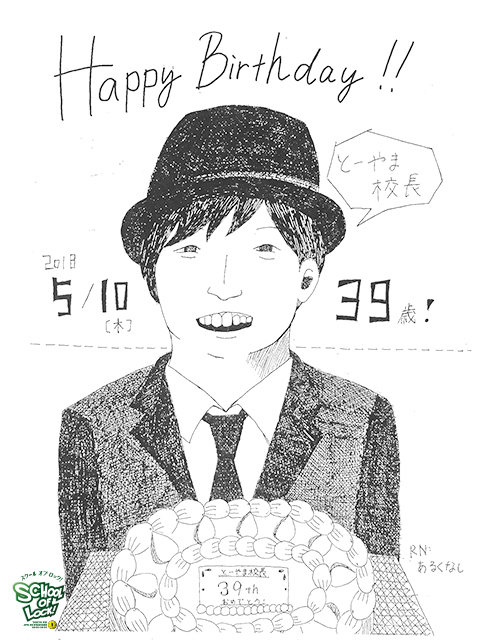 Happy Birthday!!
とーやま
校長
2018
5/10
[木]
39歳!
とーやま校長
39th
おめでとう!
RN:
あるくなし
スクール オブ ロック!
SCHOOL
OF
LOCK!